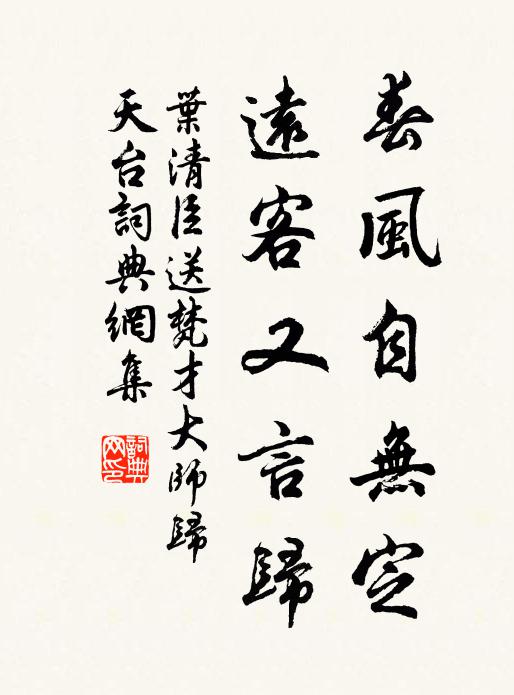 春風自無定
遠客又言歸
葉清臣送梵才大師歸
天台詞典網集
詞典网印